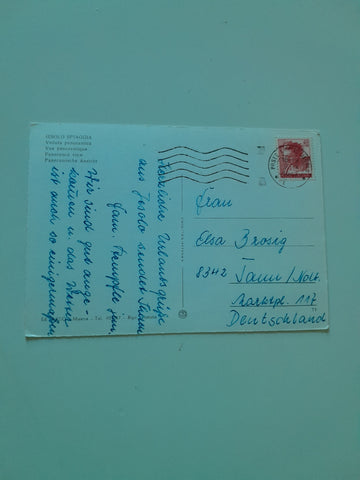 JESOLO SPIAGGIA
Veduta panoramica
Vue panoramique
Panorama view
Panoramische Ansicht
Herzliche Urlaubsgrüße
aus Jesolo sendet Ihnen
Fam.
Wir sind gut ange-
kommen u. das Wetter
ist auch so einigermaßen
Frau
Elsa Brosig
8342 Tann/Ndb.
Marktpl. 117
Deutschland